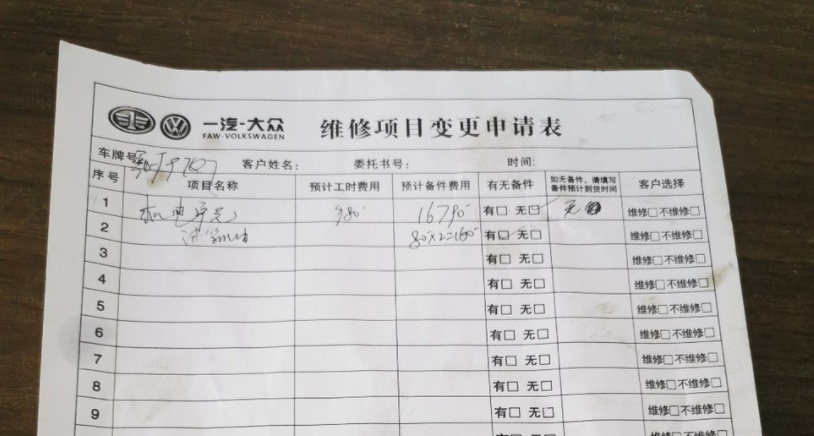 一汽-大众 维修项目变更申请表
FAW-VOLKSWAGEN
车牌号: 客户姓名: 委托书号: 时间:
序号 项目名称 预计工时费用 预计备件费用 有无备件 如无备件,请填写备件预计到货时间 客户选择
1 机电单元 980 16790 有□ 无□ 无 维修□不维修□
2 80×2=160 有□ 无□ 维修□不维修□
3 有□ 无□ 维修□不维修□
4 有□ 无□ 维修□不维修□
5 有□ 无□ 维修□不维修□
6 有□ 无□ 维修□不维修□
7 有□ 无□ 维修□不维修□
8 有□ 无□ 维修□不维修□
9 有□ 无□ 维修□不维修□
有□ 无□ 维修□不维修□